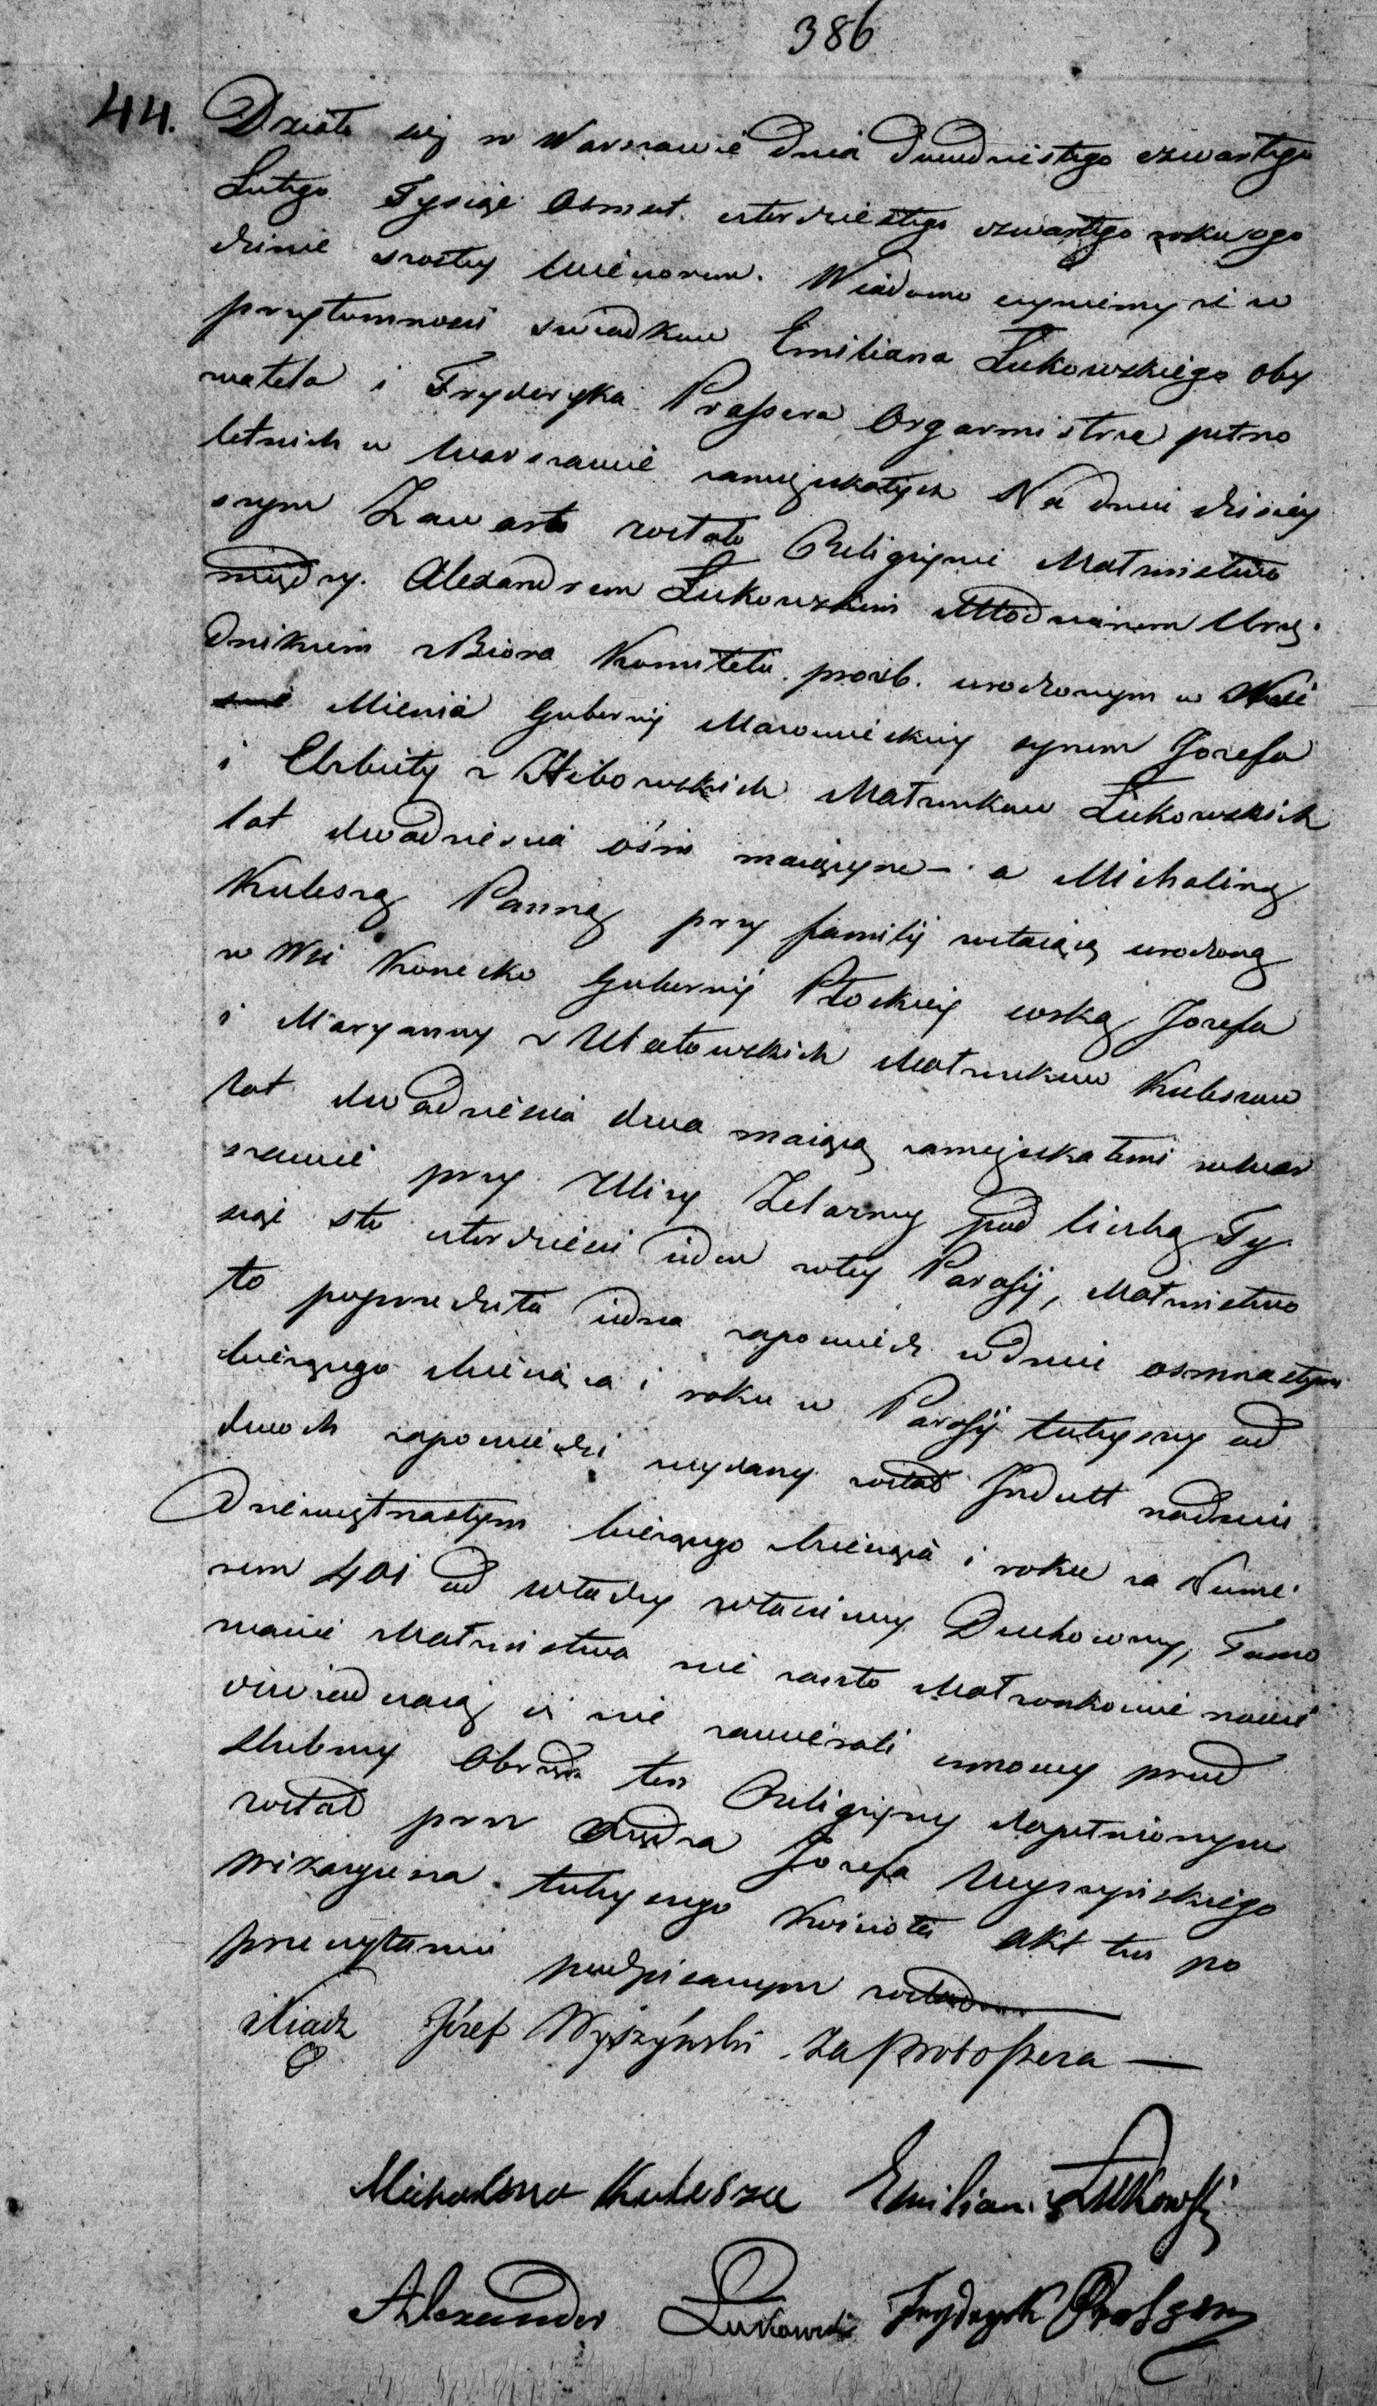 386
44. Działo się w Warszawie dnia dwudziestego czwartego
Lutego Tysiąc osmset czterdziestego czwartego roku o go
dzinie szostey wieczorem. Wiadomo czyniemy że w
przytomności swiadkow Emiliana Łukowskiego oby
watela i Fryderyka Prassera Organmistrza pełno
letnich w Warszawie zamięszkałych Na dniu dzisiey
szym Zawarte zostało Religijne Małżeństwo
między Alexandrem Łukowskim Młodzianem Urzę
dnikiem z Biora Komitetu prozb. urodzonym w Wsi
Mienia Gubernij Mazowieckiej synem Jozefa
i Elzbiety z Małżonkow Łukowskich
lat dwadziescia ośm maiącym – a Michaliną
Kuleszą Panną przy familij zostaiącą urodzoną
w Wsi Konecko Gubernij Płockiej corką Jozefa
i Maryanny z Małżonkow Kuleszow
lat dwadziescia dwa maiącą zamięszkałemi w War
szawie przy Ulicy Żelazney pod liczbą Ty
siąc sto czterdziesci ieden w tey Parafij, Małżeństwo
to poprzedziła iedna zapowiedz w dniu osmnastym
bieżącego Miesiąca i roku w Parafij tuteyszey od
dwoch zapowiedzi wydany został Indult na dniu
dziewiętnastym bieżącego Miesiąca i roku za Nume
rem 401 od władzy właściwey Duchowney, Tamo
wanie Małżeństwa nie zaszło Małżonkowie nowi
oświadczaią iż nie zawierali umowy przed
slubney Obrzęd ten Religijny dopełnionym
został przez Xiędza Jozefa Wyszyńskiego
Wikaryusza tuteyszego Kościoła Akt ten po
przeczytaniu podpisanym został
Xiądz Józef Wyszyński za Proboszcza —
Michalina Kulesza Emilian Łukowski
Alexander Łukowski Fryderyk Prasser